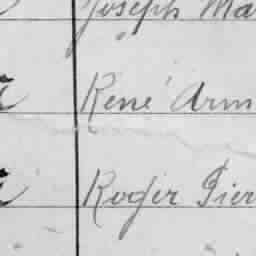 Joseph Ma
René Arm
Roger Pier